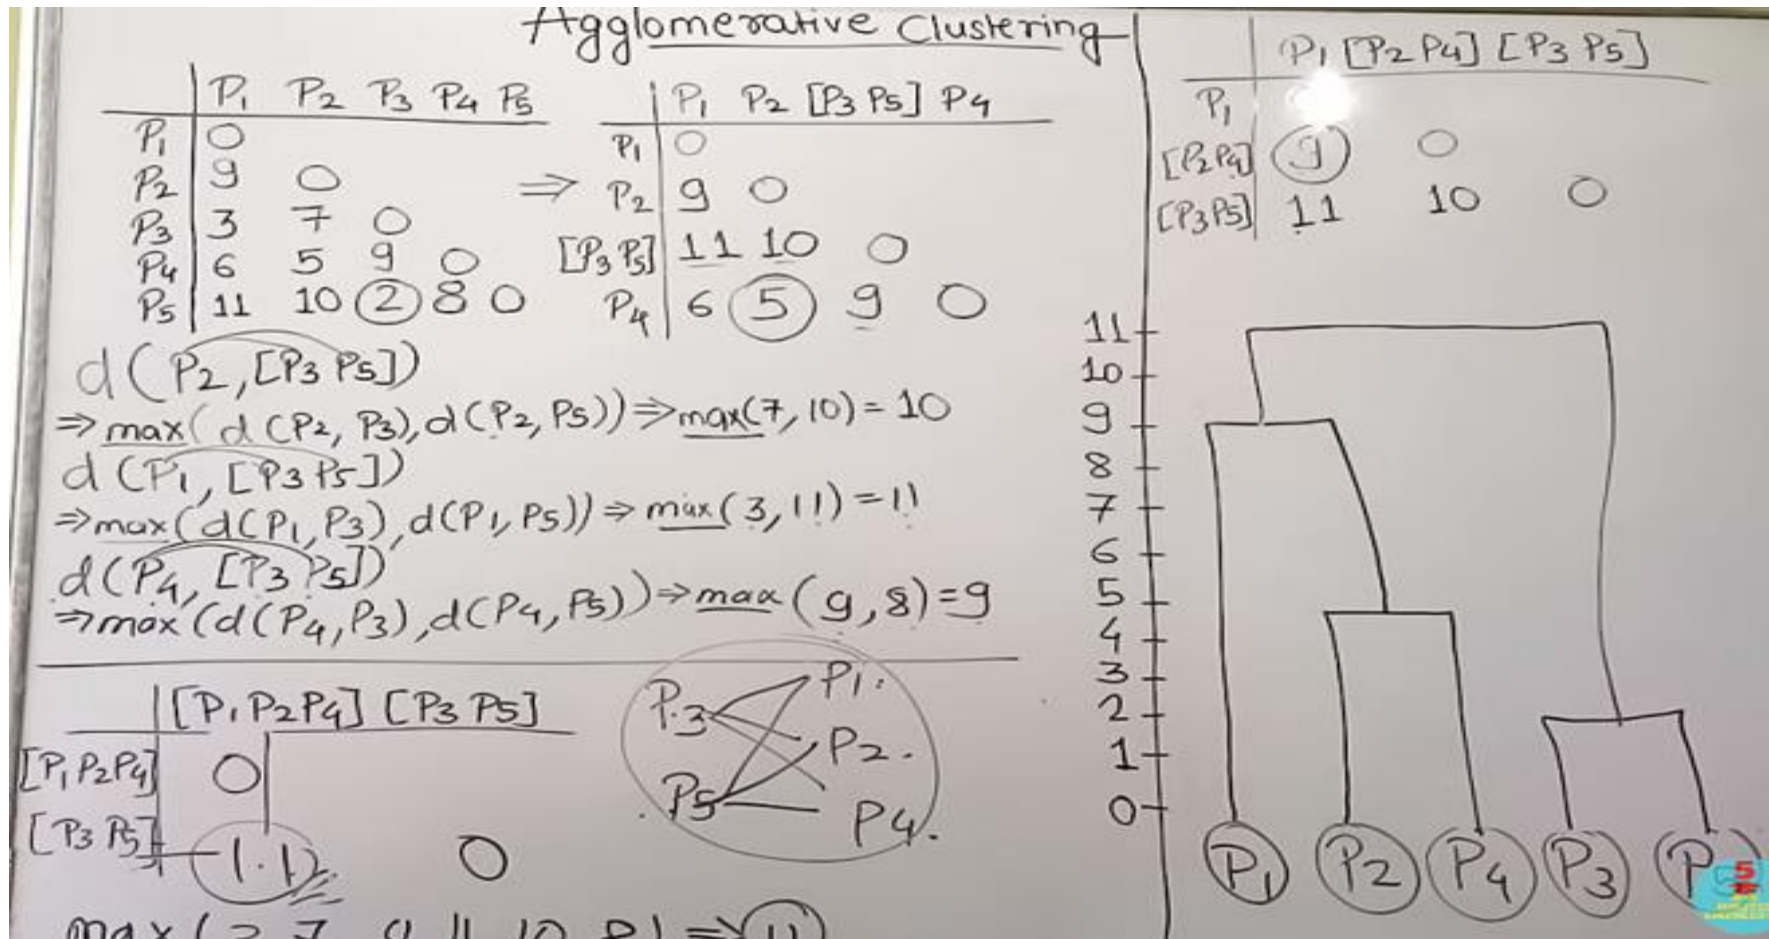 Agglomerative Clustering
P1 P2 P3 P4 P5
P1 0
P2 9 0
P3 3 7 0
P4 6 5 9 0
P5 11 10 2 8 0
⇒
P1 P2 [P3 P5] P4
P1 0
P2 9 0
[P3 P5] 11 10 0
P4 6 5 9 0
d(P2,[P3 P5])
⇒max(d(P2, P3),d(P2, P5))⇒max(7,10)=10
d(P1,[P3 P5])
⇒max(d(P1,P3),d(P1,P5))⇒max(3,11)=11
d(P4,[P3 P5])
⇒max(d(P4,P3),d(P4,P5))⇒max(9,8)=9
[P1 P2 P4] [P3 P5]
[P1 P2 P4] 0
[P3 P5] 11 0
P3
P5
P1.
P2.
P4.
⇒ 11
P1 [P2 P4] [P3 P5]
P1
[P2 P4] 9 0
[P3 P5] 11 10 0
11
10
9
8
7
6
5
4
3
2
1
0
P1 P2 P4 P3
5